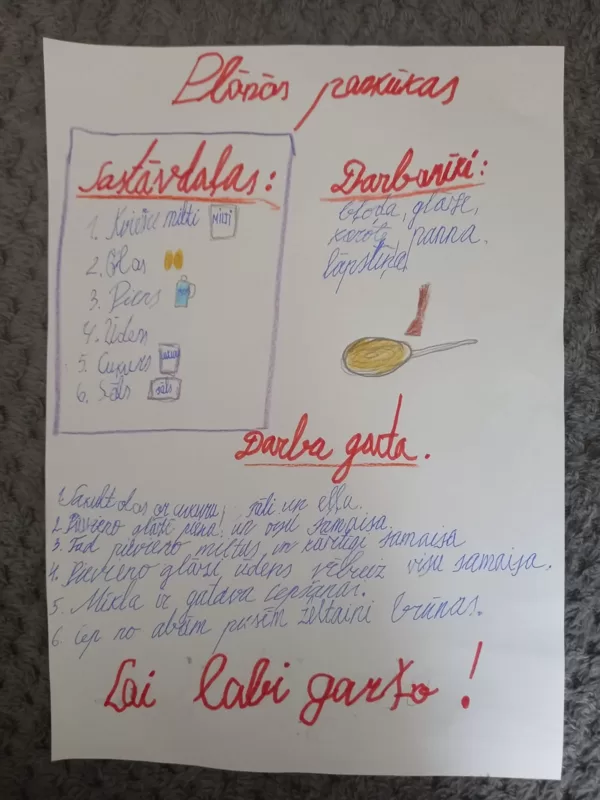 Plānās pankūkas
Sastāvdaļas:
1. Kviešu milti MILTI
2. Olas
3. Piens
4. Ūdens
5. Cukurs
6. Sāls Sāls
Darbarīki:
bļoda, glāze,
karote, panna.
lāpstiņa
Darba gaita.
1. Sakult olas ar cukuru, sāli un eļļu.
2. Pievieno glāzi piena un visu samaisa.
3. Tad pievieno miltus un kārtīgi samaisa
4. Pievieno glāzi ūdens vēlreiz visu samaisa.
5. Mīkla ir gatava cepšanai.
6. Cep no abām pusēm zeltaini brūnas.
Lai labi garšo!